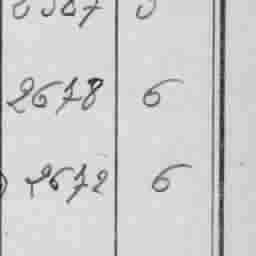 2678 6
2672 6